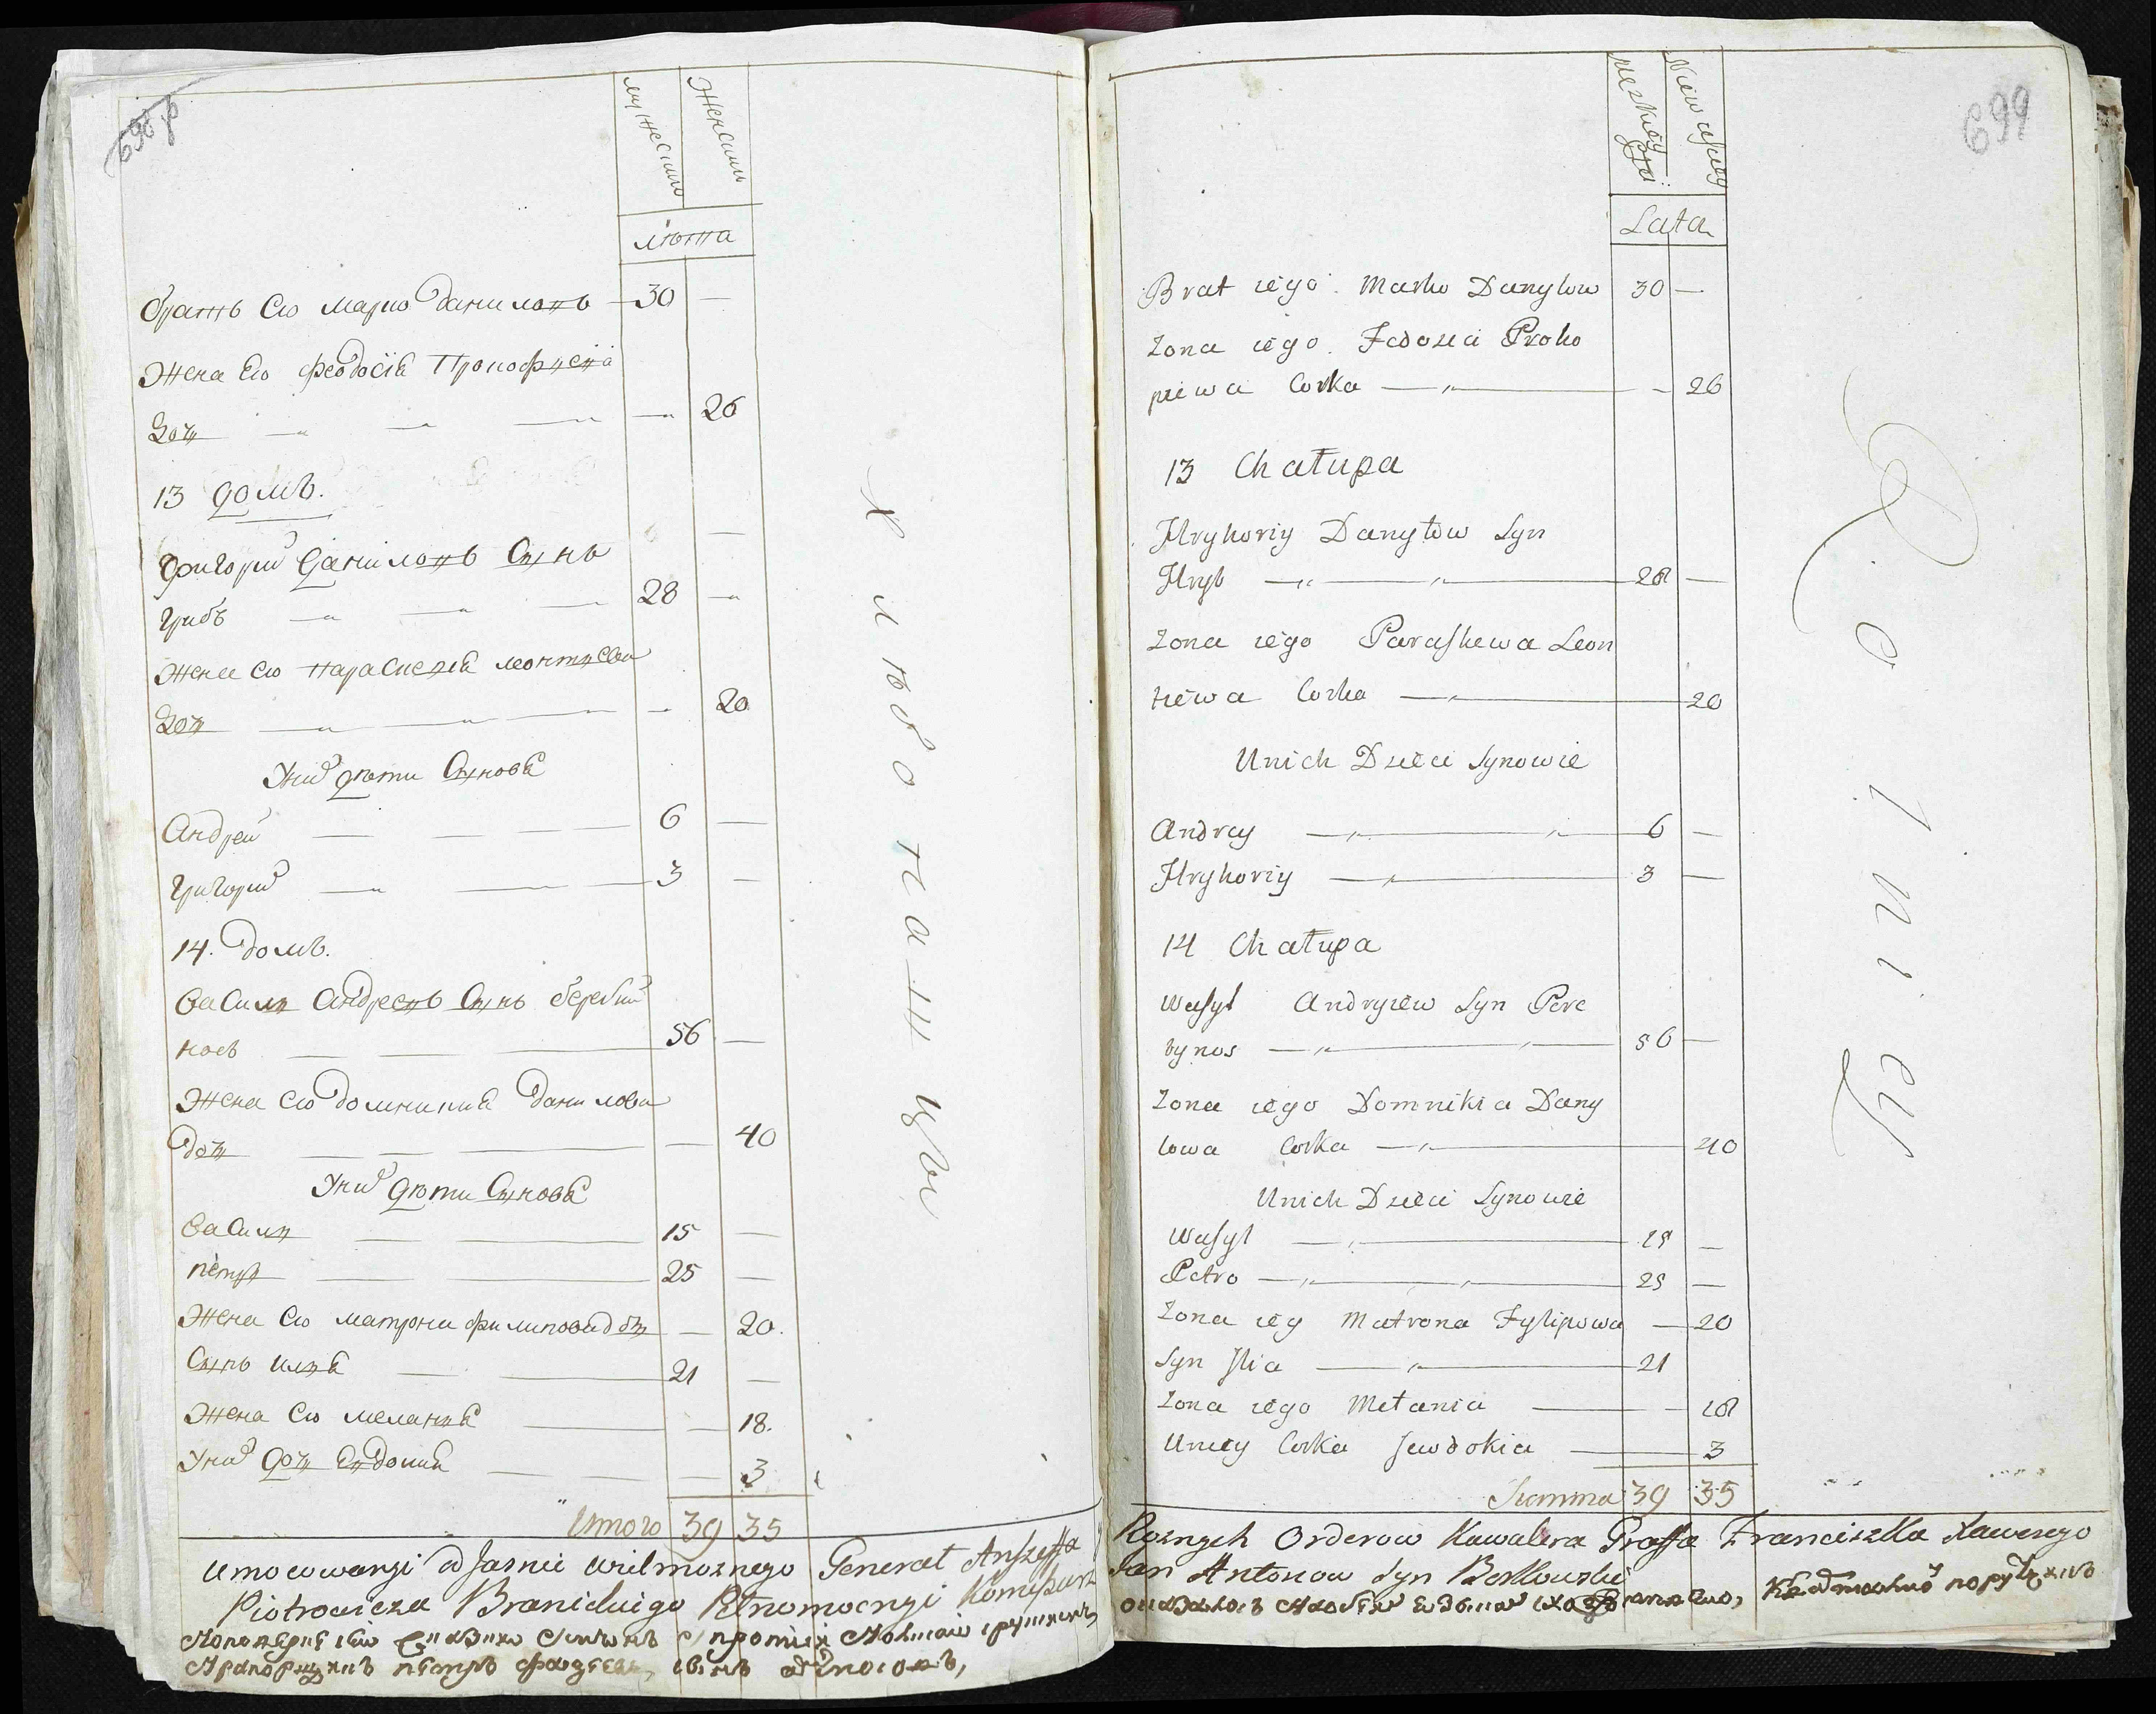 мужеска
Женска
лѣта
братъ его марко даниловъ 30 —
Жена его феодосїя Прокофьева
дочь — 26
13 домъ.
Григорий даниловъ Сынъ
грибъ 28 —
Жена его параскевия леонтьева
дочь — 20
У них дѣти Сыновя
Андрей 6 —
Григорий 3 —
14. домъ.
Василь Андреевъ Сынъ беребий
носъ 56 —
Жена его домникия данилова
дочь — 40
У них дѣти Сыновя
Василь 15 —
петръ 25 —
Жена его матрона филипова дочь — 20.
Сынъ илья 21 —
Жена его мелания — 18.
У них дочь Евдокия — 3
Итого 39 35
Хлѣбопашцы
Umocowanyi od Jasnie Wielmoznego Generał Anszeffa
Piotrowicza Branickiego Pełnomocnyi Komisarz
699
męzkiey płci
Niewieściey
Lata
Brat iego Marko Danyłow 30 —
Zona iego Fedosia Proko
piewa Corka — 26
13 Chałupa
Hryhoriy Danyłow Syn
Hryb 28 —
Zona iego Paraskewa Leon
tiewa Corka 20
Unich Dzieci Synowie
Andrey 6 —
Hryhoriy 3 —
14 Chałupa
Wasyl Andryiew Syn Pere
bynos 56 —
Zona iego Domnikia Dany
lowa Corka 40
Unich Dzieci Synowie
Wasyl 15 —
Petro 25 —
Zona ieg Matrona Fylipowa — 20
Syn Ilia 21
Zona iego Mełania — 18
Uniey Corka Jewdokia 3
Summa 39 35
Rolnicy
Roznych Orderow Kawalera Graffa Franciszka Xawerego
Jan Antonow Syn